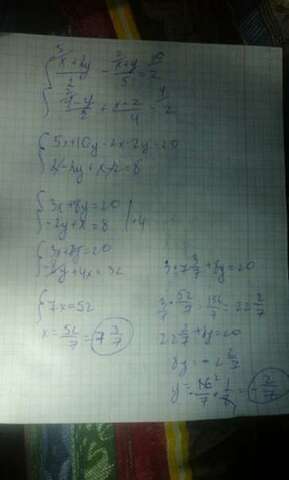 (x+2y)/2 - (x+y)/5 = 2
+ (x-2)/4 = 2
5x+10y-2x-2y=20
2-2y+x-2=8
3x+8y=20
-2y+x=8 |·4
3x+8y=20
-8y+4x=32
7x=52
x=52/7=7 3/7
3·7 3/7+8y=20
3/7 · 52/7 = 156/7 = 22 2/7
22 2/7+8y=20
8y=-2 2/7
y=-16/7·1/8=-2/7